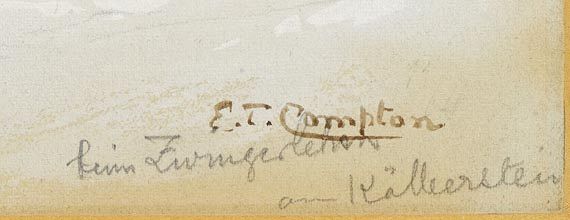 E.T. Compton
beim Zwingerlehen
am Kälberstein